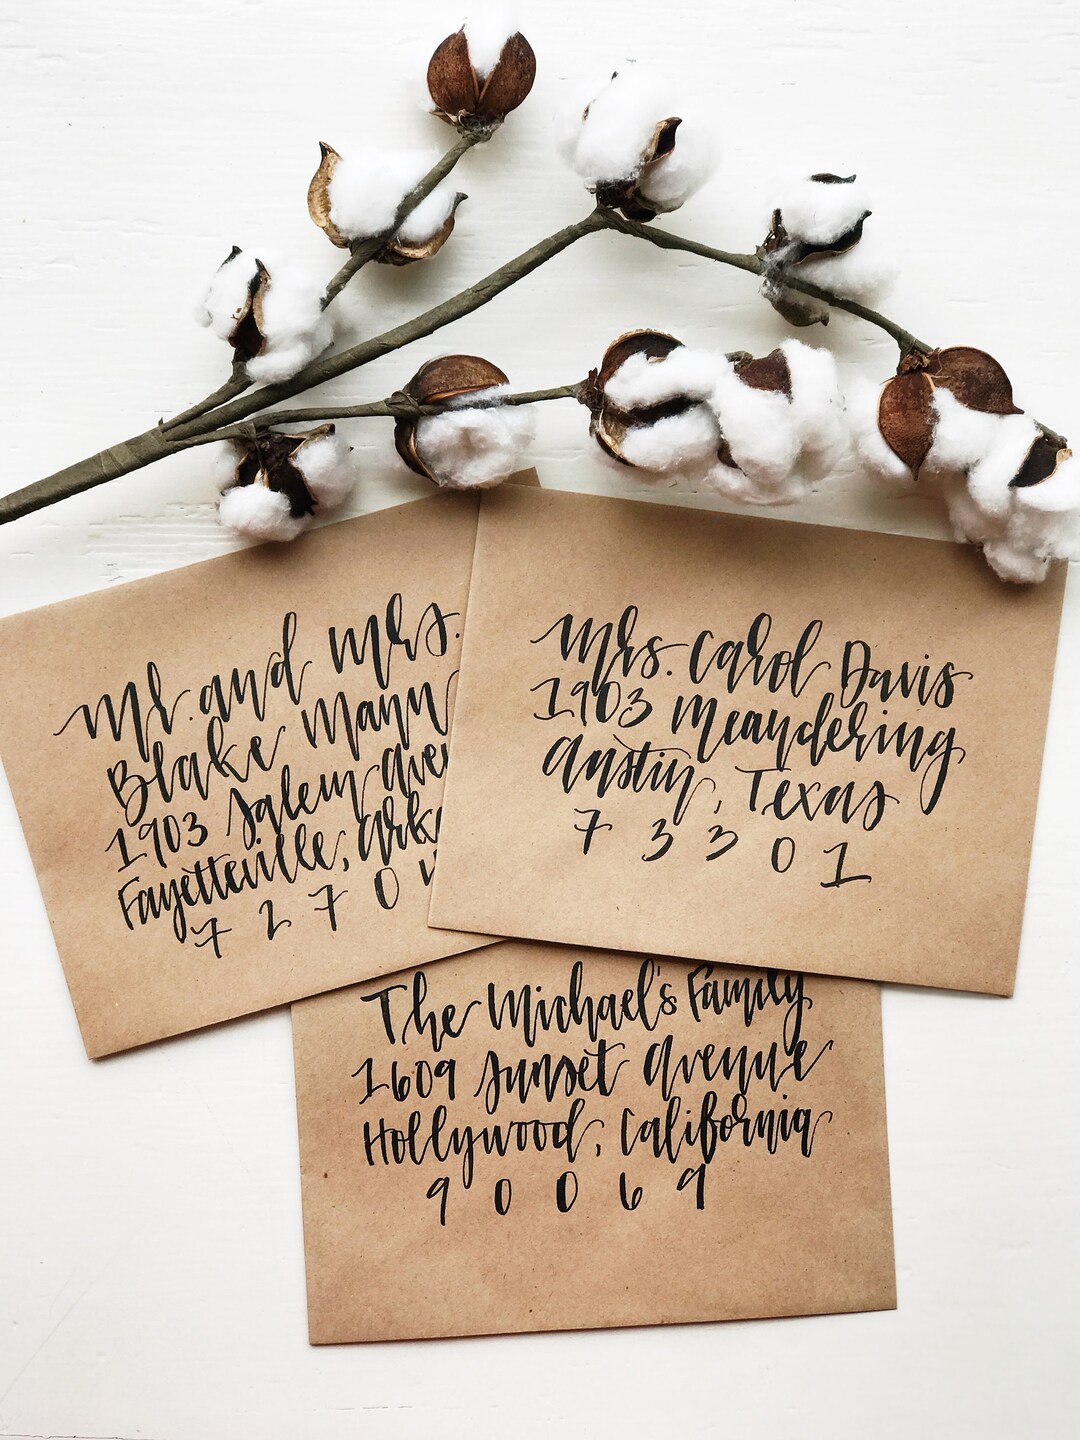 Mr. and Mrs.
Blake Mann
1903 Salem Aven
Fayetteville, Arka
7 2 7 0
Mrs. Carol Davis
1903 Meandering
Austin, Texas
7 3 3 0 1
The Michael's Family
1609 Sunset Avenue
Hollywood, California
9 0 0 6 9